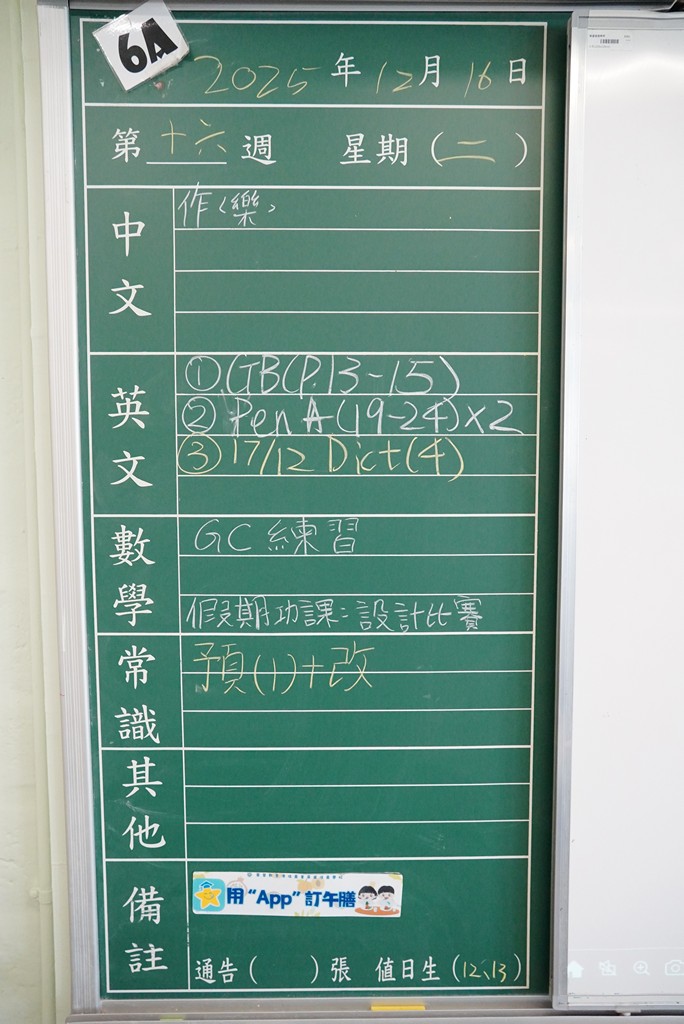 6A
2025年12月16日
第十六週 星期(二)
中文
作〈樂〉
英文
①GB(P.13-15)
② Pen A(19-24)×2
③17/12 Dict(4)
數學
GC 練習
假期功課:設計比賽
常識
預(1)+改
其他
備註
用“App”訂午膳
通告( )張 值日生(12、13)